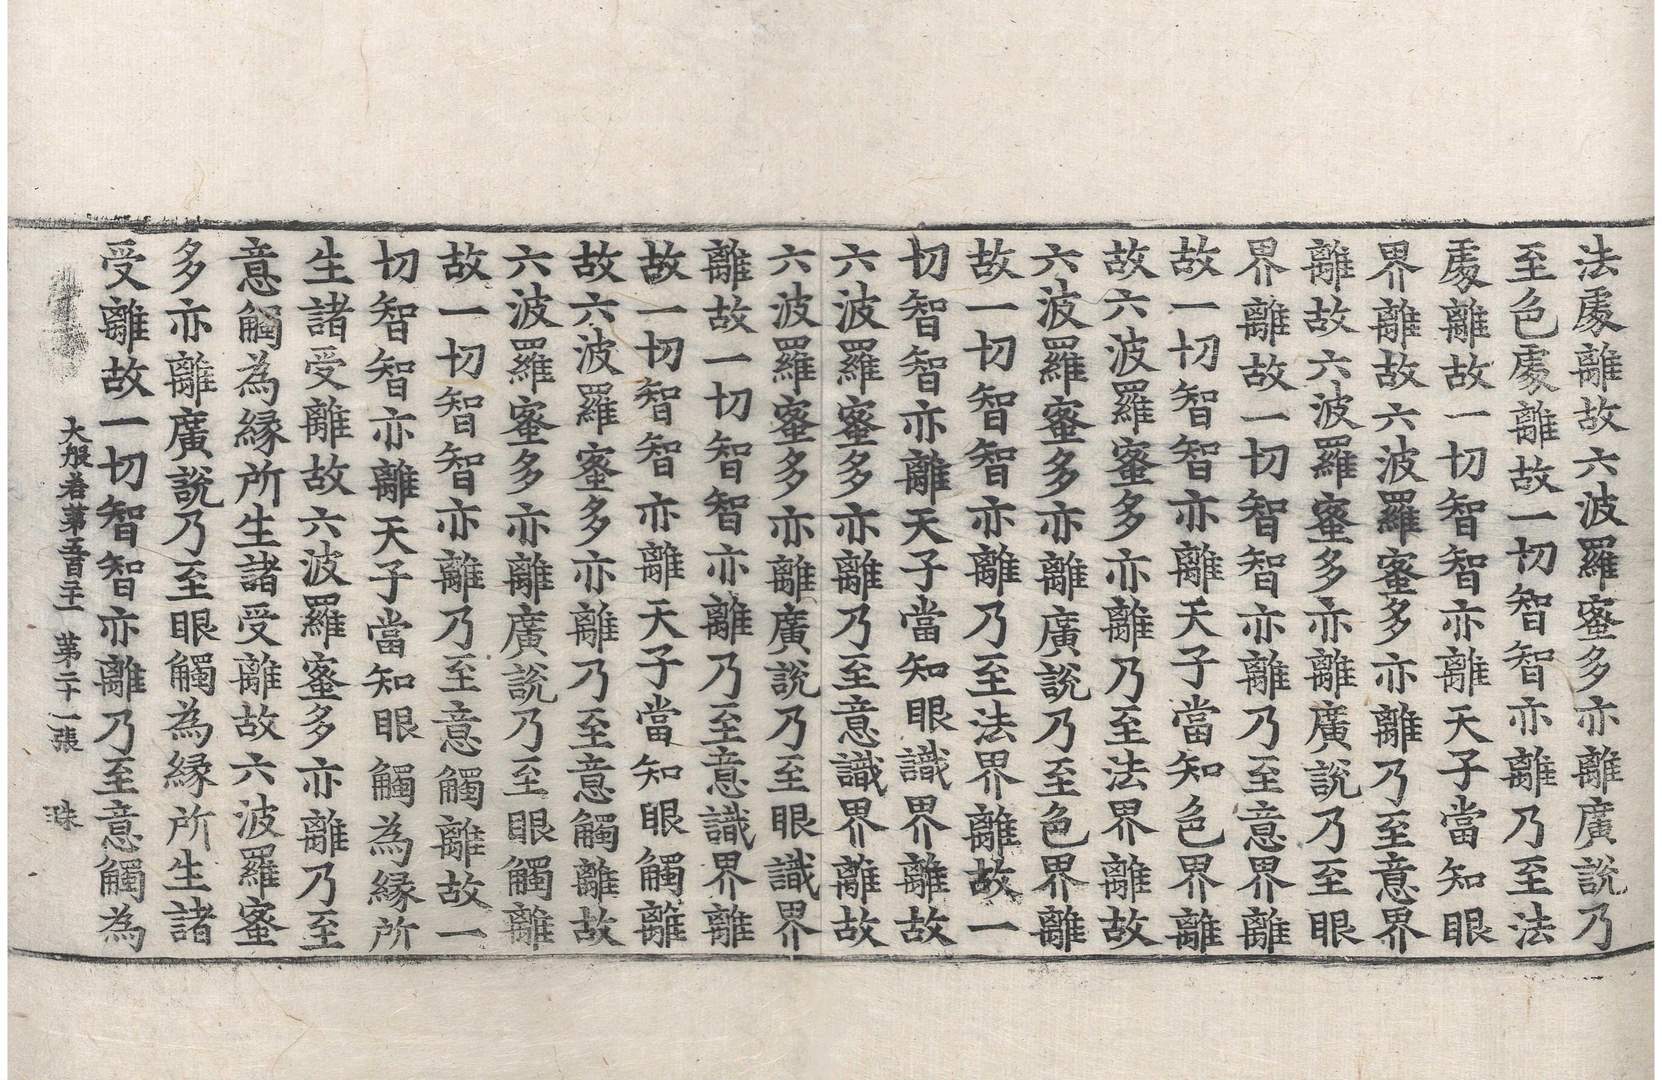 法處離故六波羅蜜多亦離廣說乃
至色處離故一切智智亦離乃至法
處離故一切智智亦離天子當知眼
界離故六波羅蜜多亦離乃至意界
離故六波羅蜜多亦離廣說乃至眼
界離故一切智智亦離乃至意界離
故一切智智亦離天子當知色界離
故六波羅蜜多亦離乃至法界離故
六波羅蜜多亦離廣說乃至色界離
故一切智智亦離乃至法界離故一
切智智亦離天子當知眼識界離故
六波羅蜜多亦離乃至意識界離故
六波羅蜜多亦離廣說乃至眼識界
離故一切智智亦離乃至意識界離
故一切智智亦離天子當知眼觸離
故六波羅蜜多亦離乃至意觸離故
六波羅蜜多亦離廣說乃至眼觸離
故一切智智亦離乃至意觸離故一
切智智亦離天子當知眼觸為緣所
生諸受離故六波羅蜜多亦離乃至
意觸為緣所生諸受離故六波羅蜜
多亦離廣說乃至眼觸為緣所生諸
受離故一切智智亦離乃至意觸為
大般若第五百二十一 第二十一張 珠